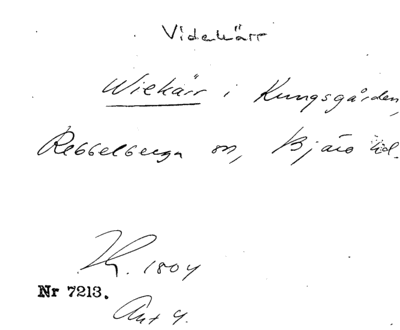 Videkärr
Wiekärr i Kungsgården,
Rebbelberga sn, Bjäre hd.
Kh. 1804
Nr 7213.
Ant 4.